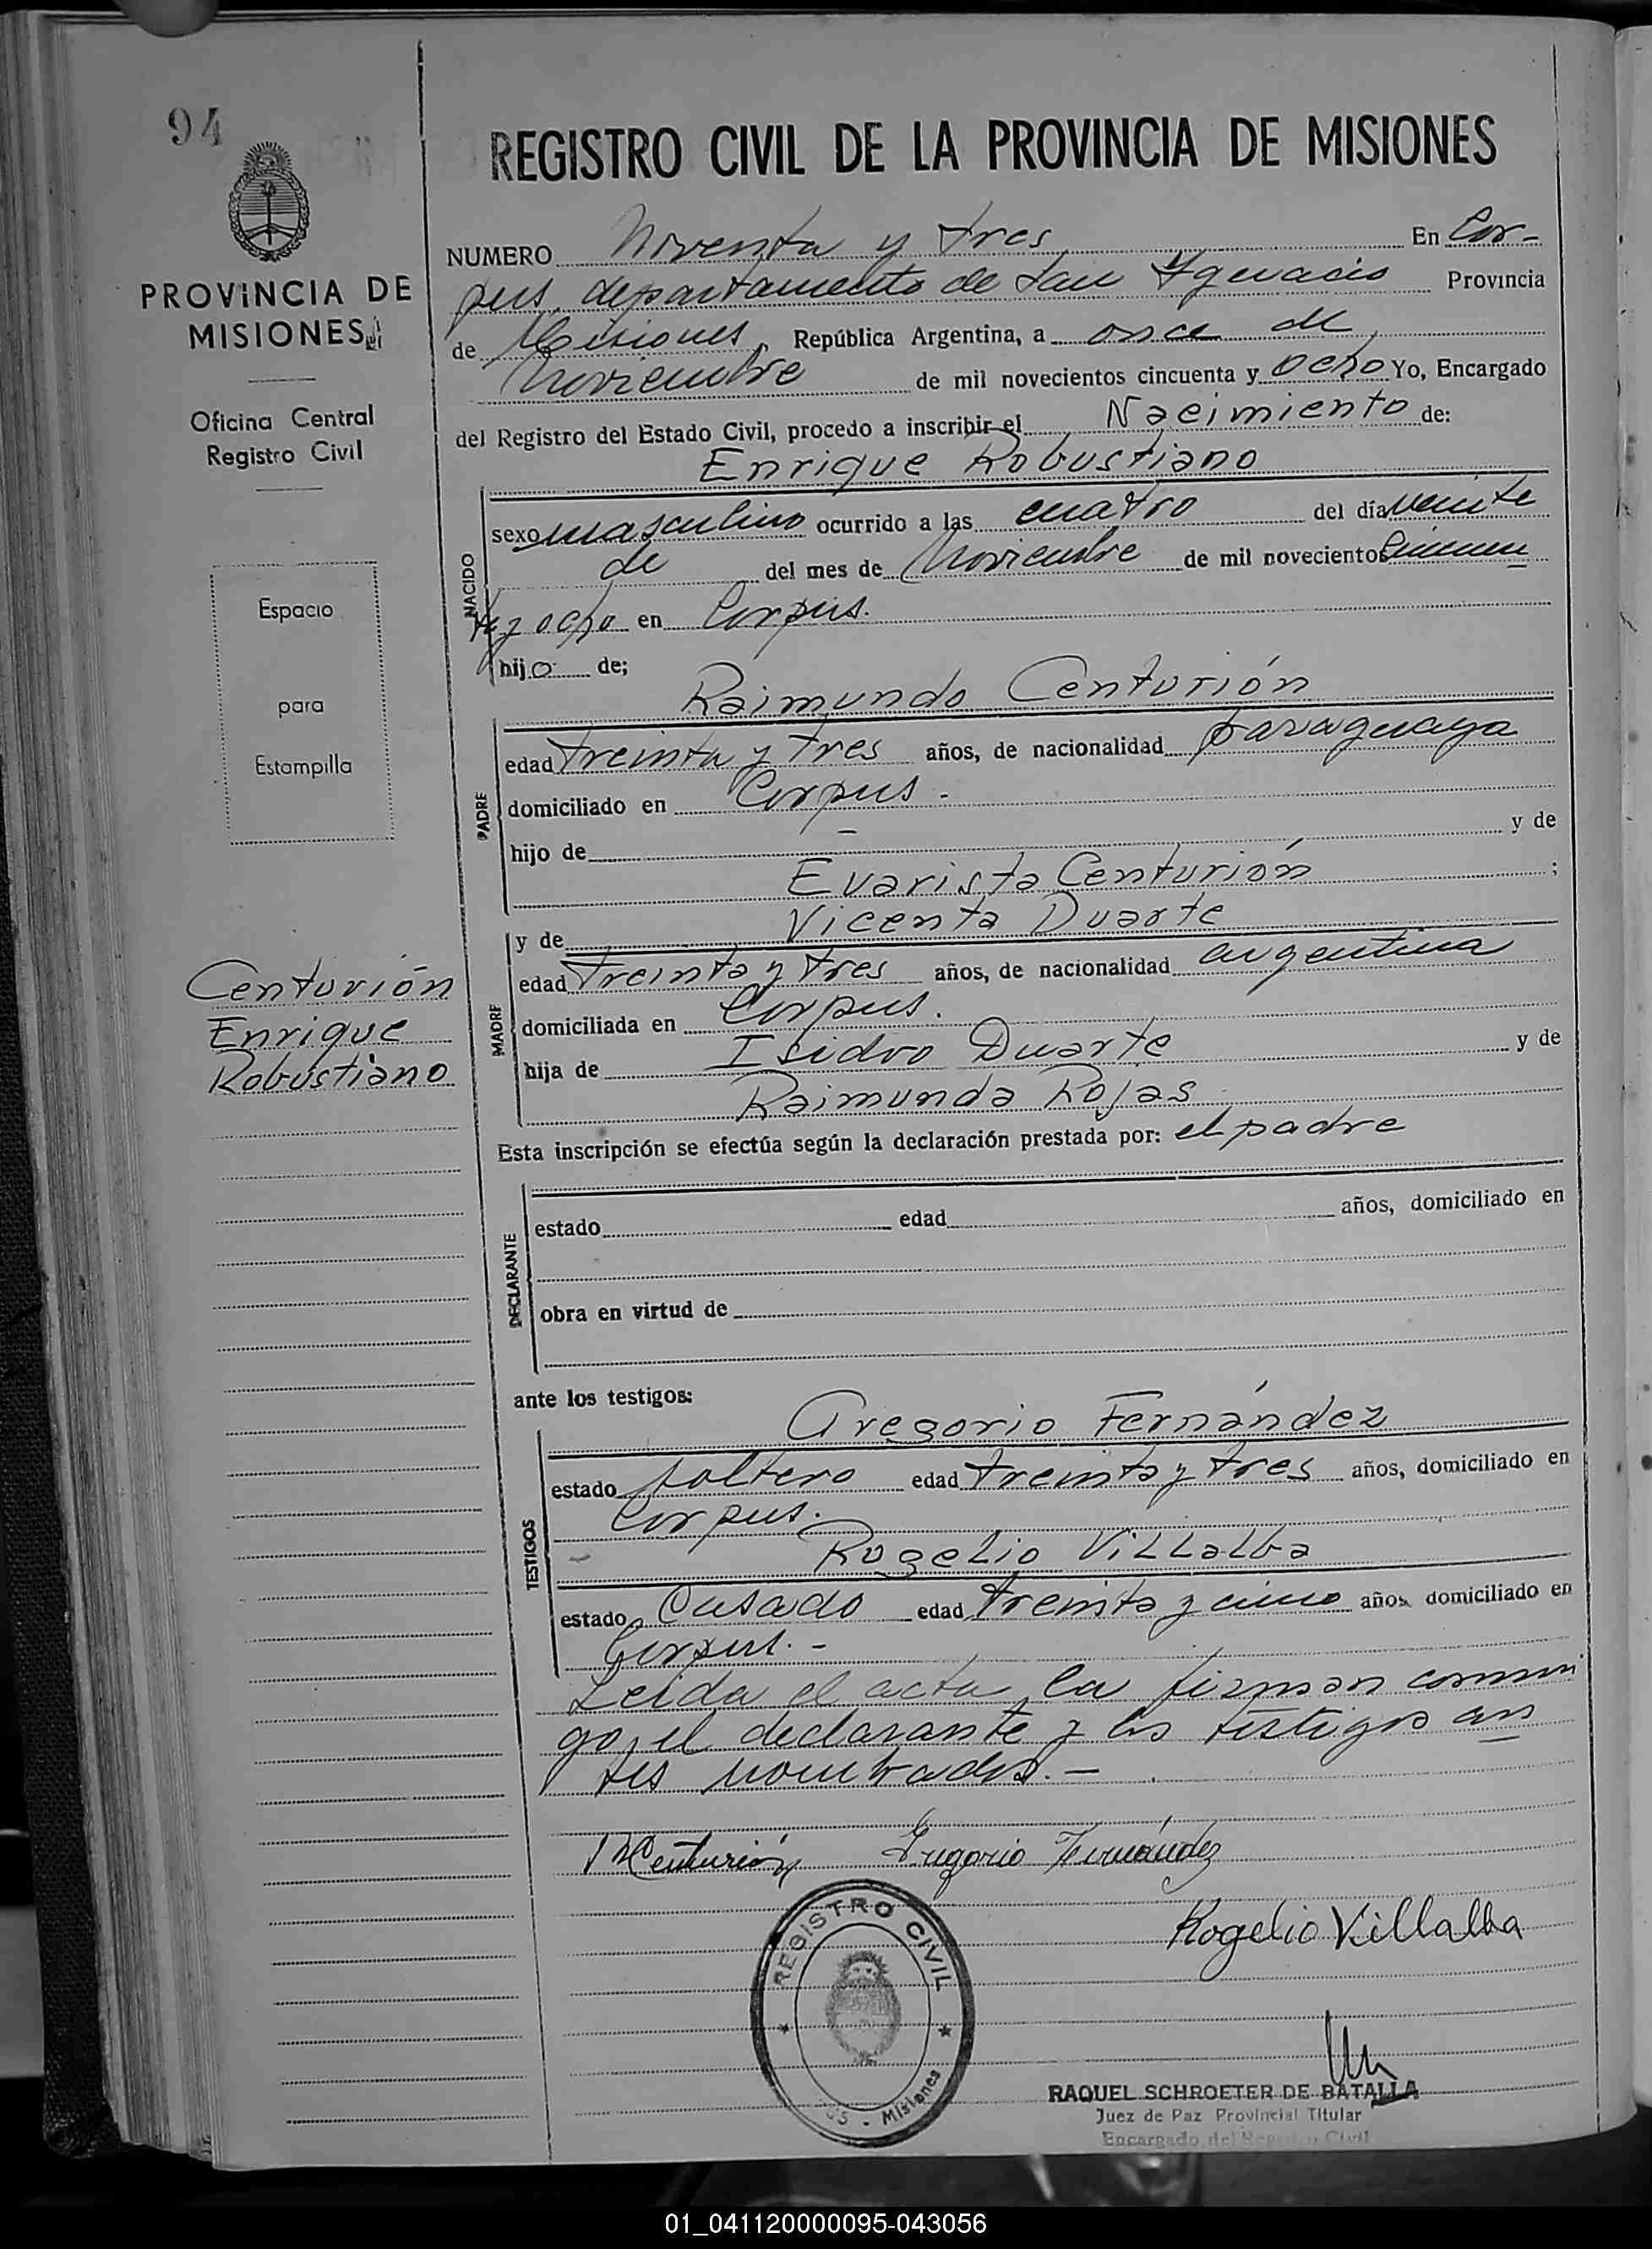 94
REGISTRO CIVIL DE LA PROVINCIA DE MISIONES
PROVINCIA DE
MISIONES
Oficina Central
Registro Civil
Espacio
para
Estampilla
Centurión
Enrique
Robustiano
NUMERO Noventa y tres En Cor-
pus, departamento de San Ygnacio Provincia
de Misiones, República Argentina, a once de
Noviembre de mil novecientos cincuenta y ocho Yo, Encargado
del Registro del Estado Civil, procedo a inscribir el Nacimiento de:
Enrique Robustiano
NACIDO
sexo masculino ocurrido a las cuatro del día veinte
de del mes de Noviembre de mil novecientos cincuen
ta y ocho en Corpus.
hijo de;
Raimundo Centurión
PADRE
edad treinta y tres años, de nacionalidad paraguaya
domiciliado en Corpus.-
hijo de - y de
Evarista Centurión ;
y de Vicenta Duarte
MADRE
edad treinta y tres años, de nacionalidad argentina
domiciliada en Corpus.
hija de Isidro Duarte y de
Raimunda Rojas
Esta inscripción se efectúa según la declaración prestada por: el padre
DECLARANTE
estado edad años, domiciliado en
obra en virtud de
ante los testigos:
Gregorio Fernández
TESTIGOS
estado soltero edad treinta y tres años, domiciliado en
Corpus.
- Rogelio Villalba
estado Casado edad treinta y cinco años domiciliado en
Corpus.-
Leida el acta la firman conmi
go, el declarante y los testigos an
tes nombrados.-
R Centurión Gregorio Fernández
Rogelio Villalba
REGISTRO CIVIL
US - Misiones
RAQUEL SCHROETER DE BATALLA
Juez de Paz Provincial Titular
Encargado del Registro Civil
01_041120000095-043056